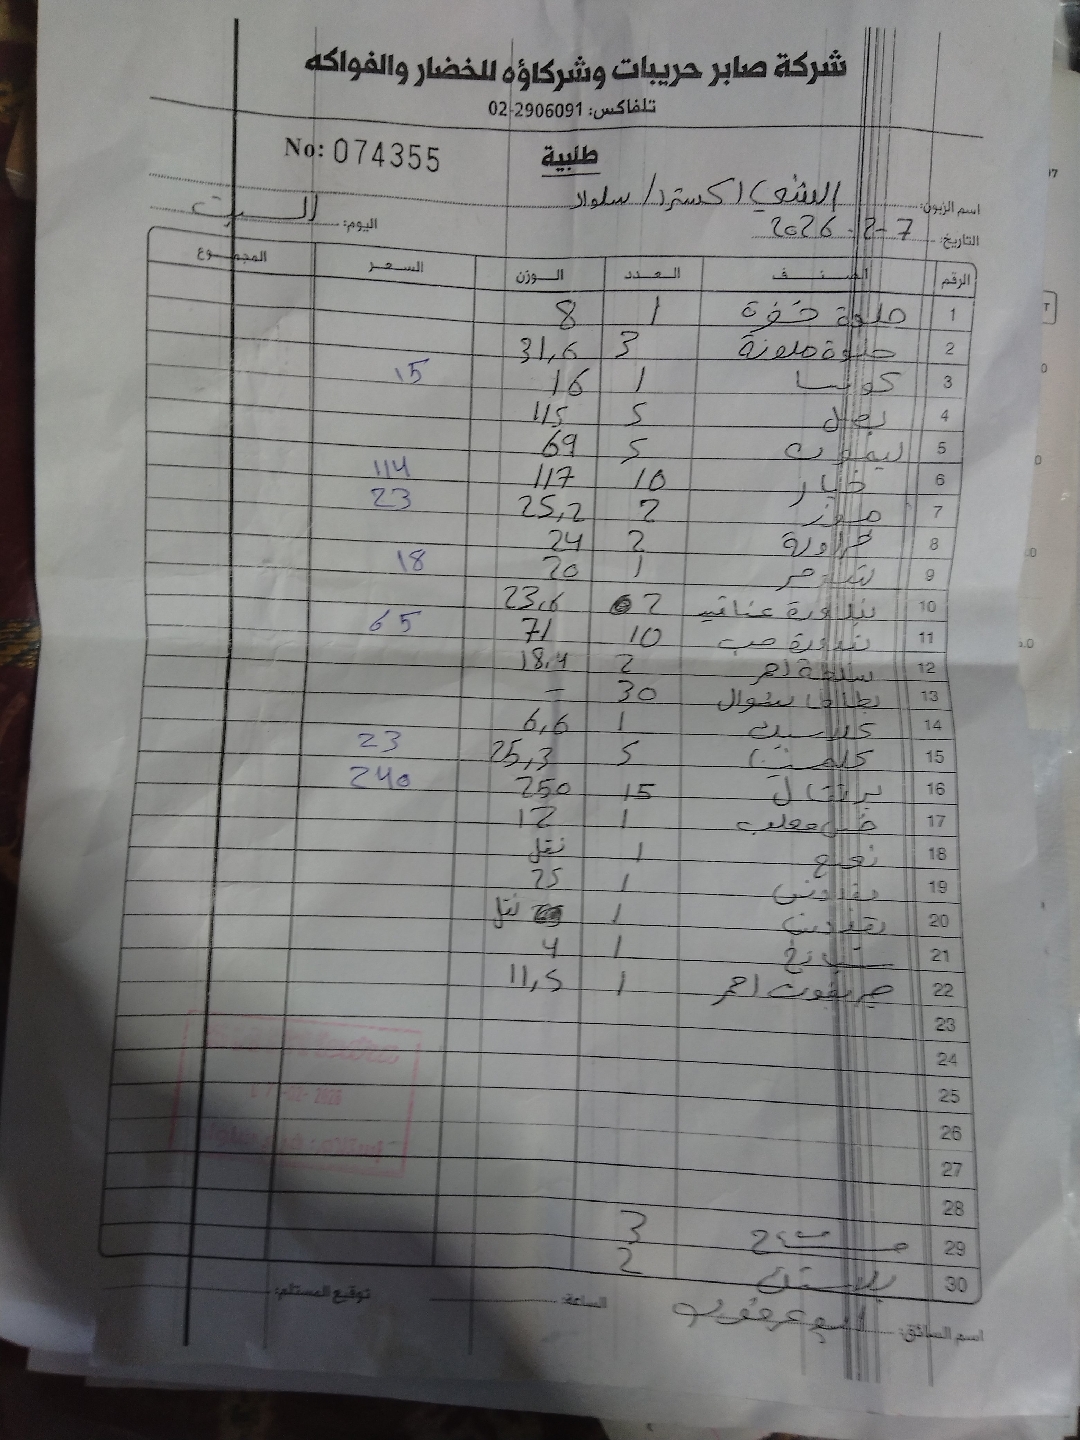 شركة صابر حريبات وشركاؤه للخضار والفواكه
تلفاكس: 02-2906091
No: 074355
طلبية
اسم الزبون: الشني اكسترا / سلواد
اليوم: السبت
التاريخ: 7-2-2026
الرقم الصنف العدد الوزن السعر المجموع
1 حلوة خضرة 1 8
2 حلوة ملونة 3 31,6
3 كوسا 1 16 15
4 بصل 5 115
5 ليمون 5 69
6 خيار 10 117 114
7 موز 2 25,2 23
8 فراولة 2 24
9 1 20 18
10 بندورة عناقيد 2 23,6
11 بندورة حب 10 71 65
12 احمر 2 18,4
13 بطاطا 30 -
14 1 6,6
15 كلمنتينا 5 25,3 23
16 برتقال 15 250 240
17 1 12
18 نعنع 1 نقل
19 بقدونس 1 25
20 1 نقل
21 سبانخ 1 4
22 جريفوت احمر 1 11,5
23
24
25
26
27
28
29 3
30 2
اسم السائق: الساعة: توقيع المستلم: